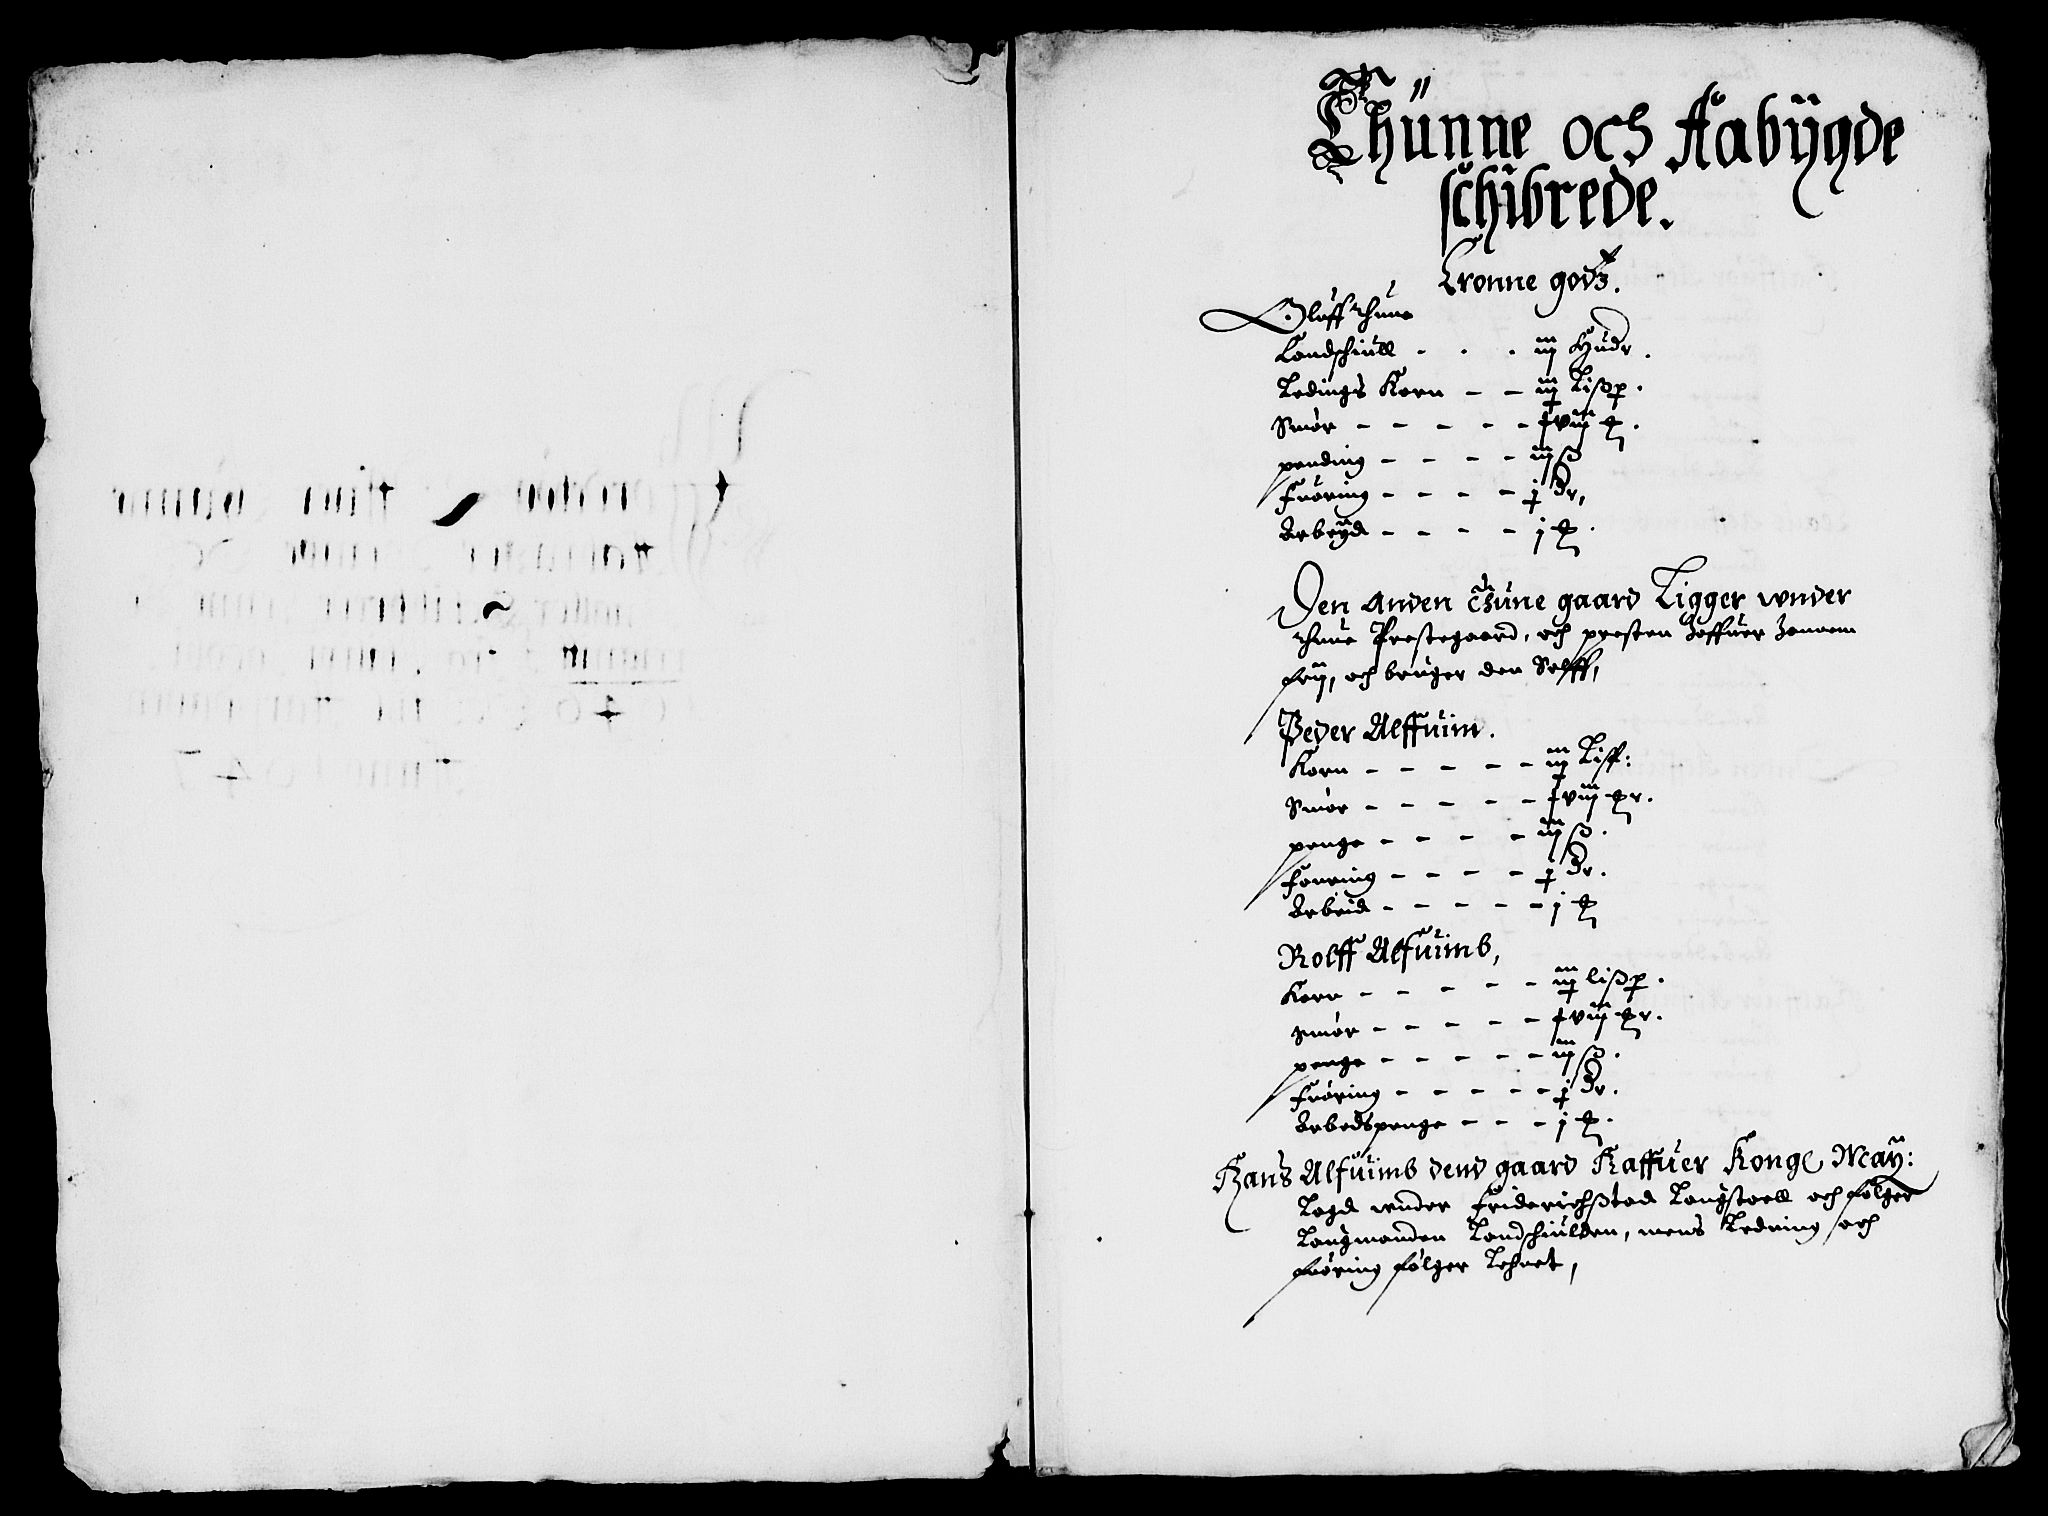 Thünne och Aabÿgde
schibrede.
Cronne godz.
Oluff thune
Landschiull - - - iij Hudr.
Ledings Korn - - iij Lißp.
Smør - - - - - viij
pending - - - - iij ß
Fuøring - - - - j Dr,
Arbeÿd - - - - j
Den anden thune gaard Ligger wnder
thune Prestegaard, och presten haffuer hannem
frij, och bruger den Selff,
Peder Alffuim.
Korn - - - - - iij Lisp:
Smør - - - - - viij
penge - - - - iij ß.
Fouring - - - - j Dr.
Arbeid - - - - - j
Rolff Alfuimb,
Korn - - - - - iij lißp.
Smør - - - - - viij
penge - - - - - iij ß.
Fuøring - - - - - j Dr.
Arbedspenge - - - j
Hans Alfuimb dend gaard haffuer Konge Maÿ:
Lagd wnder Friderichßtad Laugstoell och følger
Laugmanden Landschiulden, mens Ledning och
fuøring følger Lehnet,